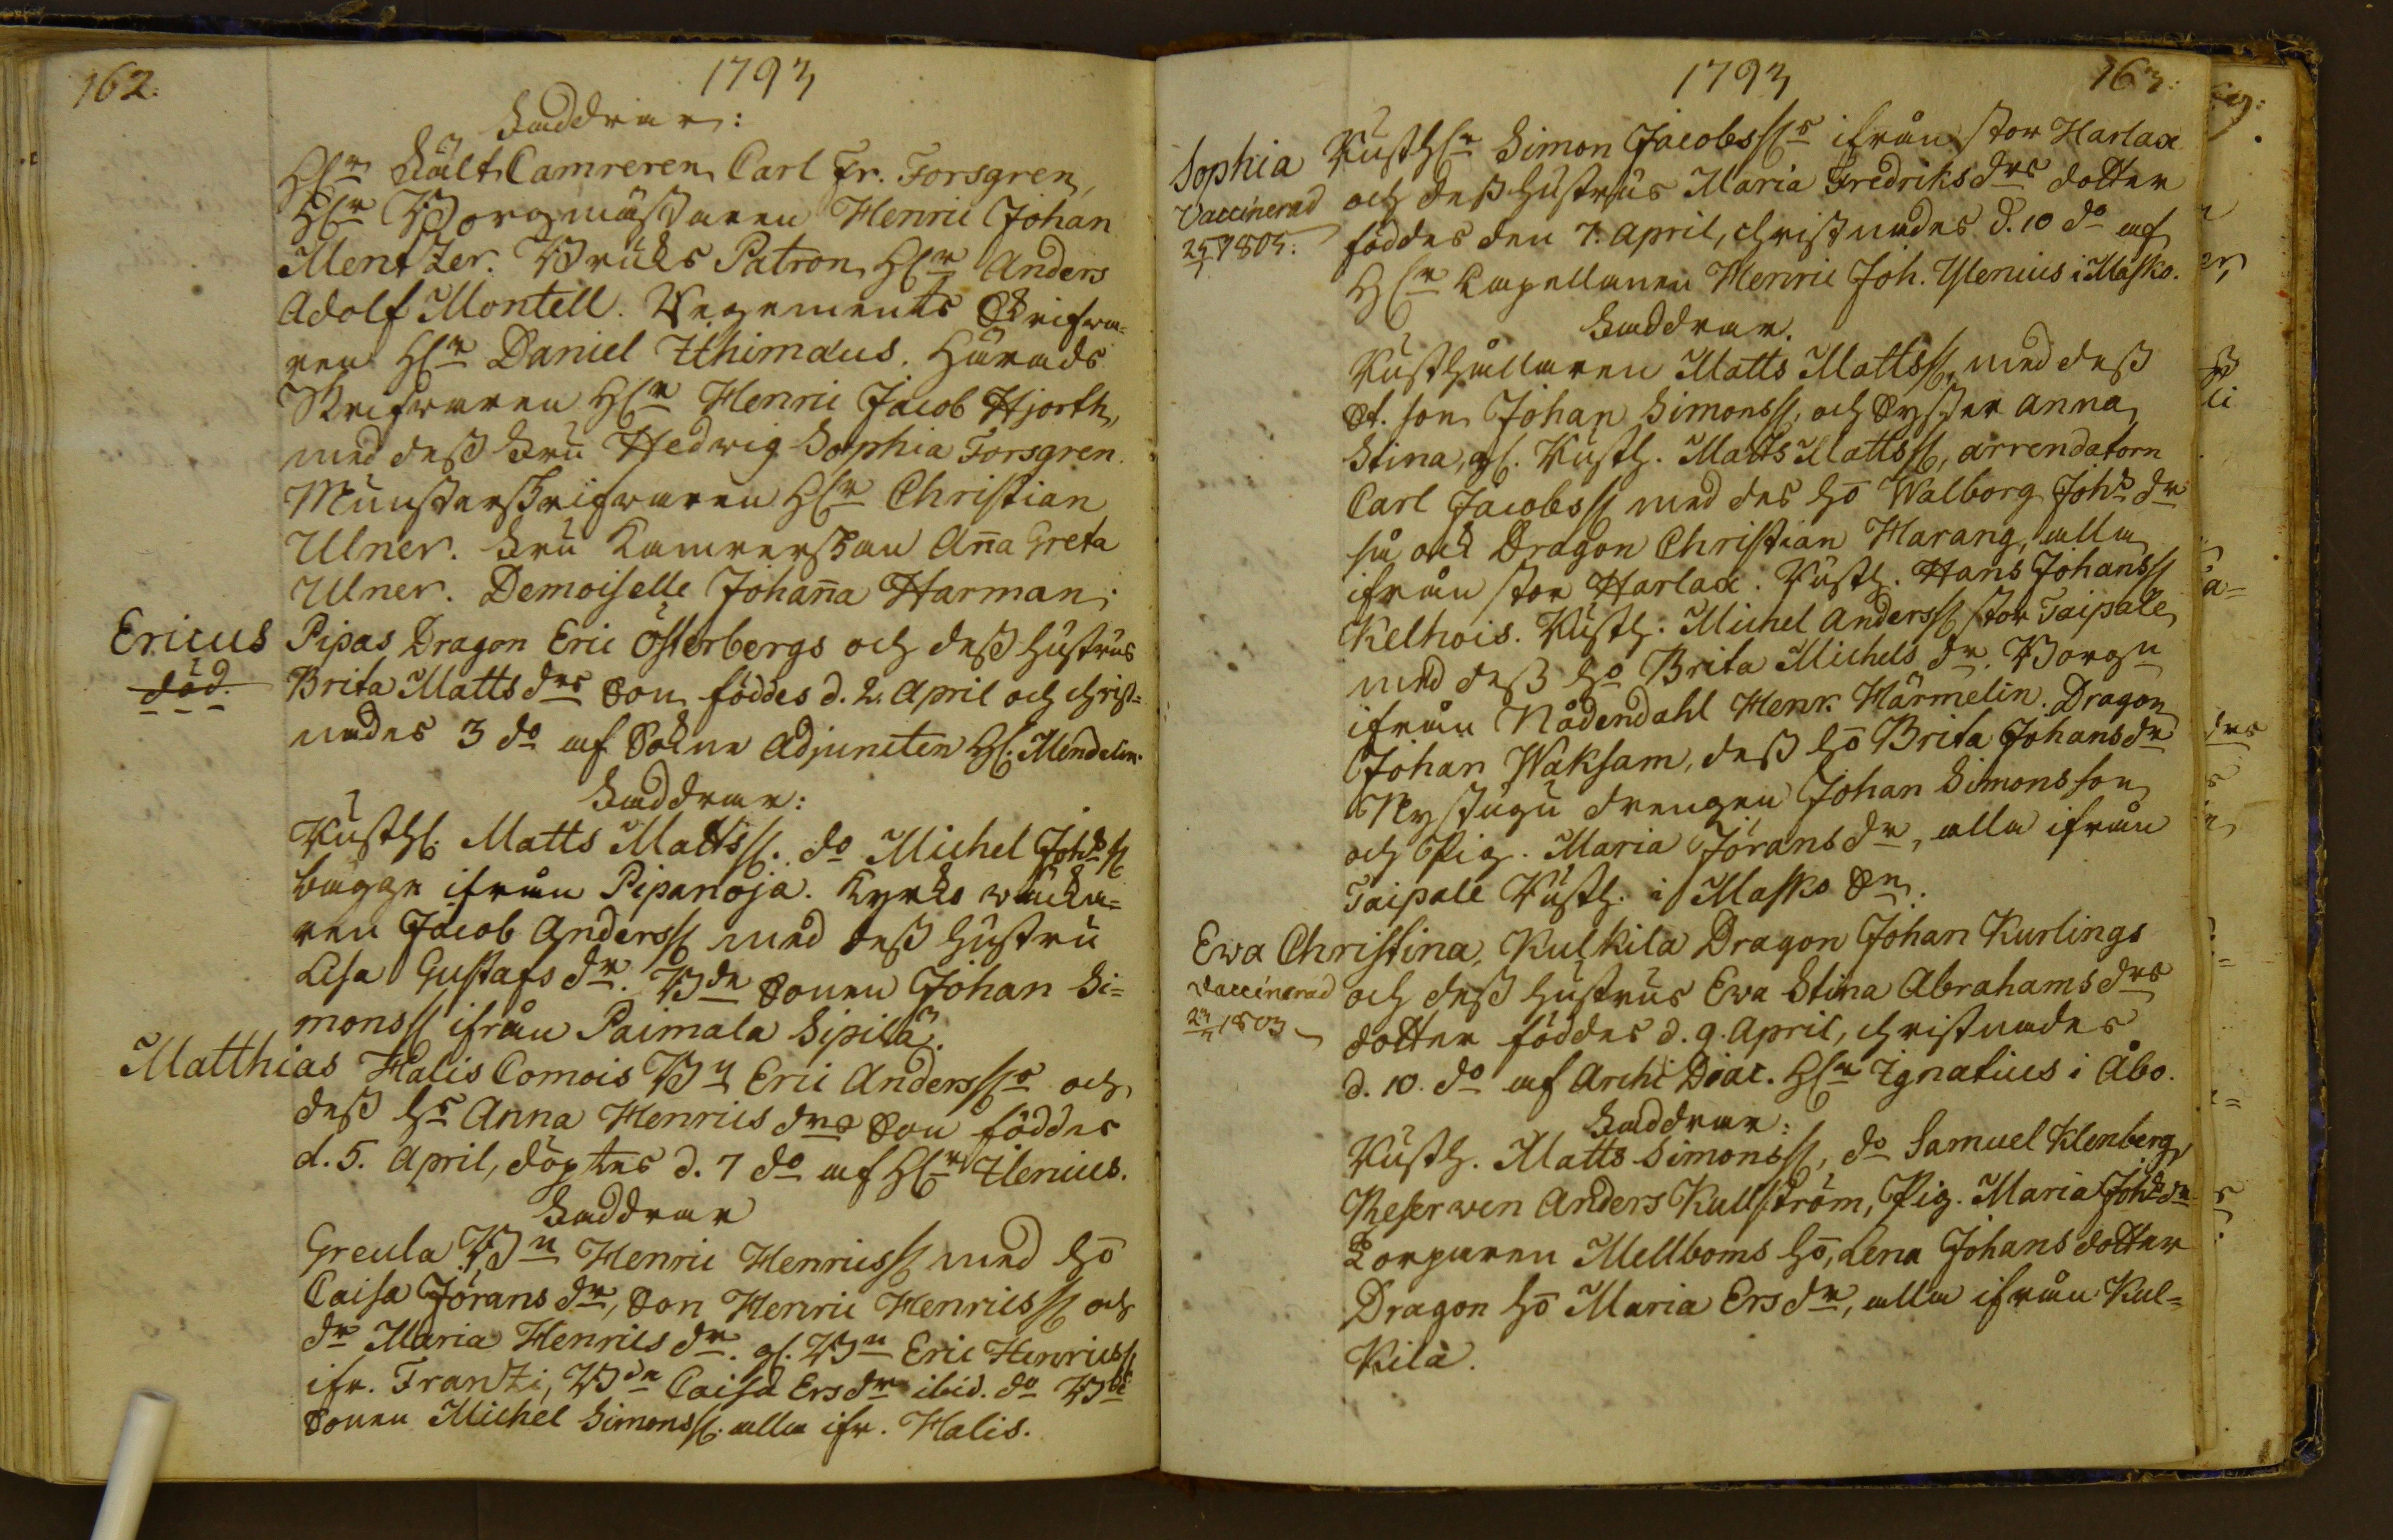 162.
1793
Faddrar:
H:r Fält Camreren Carl Fr. Forsgren,
H:r Borgmästaren Henric Johan
Mentzer. Bruks Patron H:r Anders
Adolf Montell. Regements Skrifwa=
ren H:r Daniel Ithimæus. Härads
Skrifwaren H:r Henric Jacob Hjorth,
med dess Fru Hedwig Sophia Forsgren.
Munsterskrifwaren H:r Christian
Ulner. Fru Kamrerskan Aña Greta
Ulner. Demoiselle Johaña Harman.
Ericus
död.
Pipas Dragon Eric Österbergs och dess hustrus
Brita Matts drs Son föddes d. 2. April och christ=
nades 3 do af Sokne Adjuncten H. Mendelin.
Faddrar:
Rusth. Matts Mattss. do Michel Johss
bägge ifrån Pipanoja. Kyrko wäcka=
ren Jacob Anderss med dess hustru
Lisa Gustafs dr. Bde Sonen Johan Si=
monss ifrån Paimala Sipilä.
Matthias
Halis Comois Bn Eric Anderss:s och
dess Hs Anna Henrics drs Son föddes
d. 5. April, döptes d. 7 do af H:r Ilenius.
Faddrar
Greula Bn Henric Henricss med ho
Caisa Jörans dr, Son Henric Henricss och
dr Maria Henrics dr. gl. Bn Eric Henricss
ifr. Frantzi, Bdn Caisa Ers dr ibid. do Bde
Sonen Michel Simonss. alla ifr. Halis.
1793
163.
Sophia
Vaccinerad
1805.
Rusth:n Simon Jacobss:s ifrån stor Harlax
och dess hustrus Maria Fredriks drs dotter
föddes den 7. April, christnades d. 10 do af
H:r Capellanen Henric Joh. Ylenius i Masko.
Faddrar.
Rusthållaren Matts Mattss, med dess
St. son Johan Simonss, och Syster Anna
Stina, gl. Rusth. Matts Mattss, arrendatorn
Carl Jacobss med des ho Walborg Johs dr
så ock Dragon Christian Harang, alla
ifrån stor Harlax. Rusth. Hans Johanss
Kelhois. Rusth. Michel Anderss stor Taipale
med dess ho Brita Michels dr. Borgn
ifrån Nådendahl Henr. Härmelin. Dragon
Johan Waksam, dess ho Brita Johans dr
Nystugu drengen Johan Simonsson
och Pig. Maria Jörans dr, alla ifrån
Taipale Rusth. i Masko Sn.
Ewa Christina,
Vaccinerad
1803
Kulkila Dragon Johan Kurlings
och dess hustrus Ewa Stina Abrahams drs
dotter föddes d. 9. April, christnades
d. 10. do af Archi Diac. H:r Ignatius i Åbo.
Faddrar:
Rusth. Matts Simonss, do Samuel Klenberg,
Reserwen Anders Kullström, Pig. Maria Johs dr
Torparen Mellboms ho, Lena Johans dotter
Dragon ho Maria Ers dr, alla ifrån Kul=
kila.